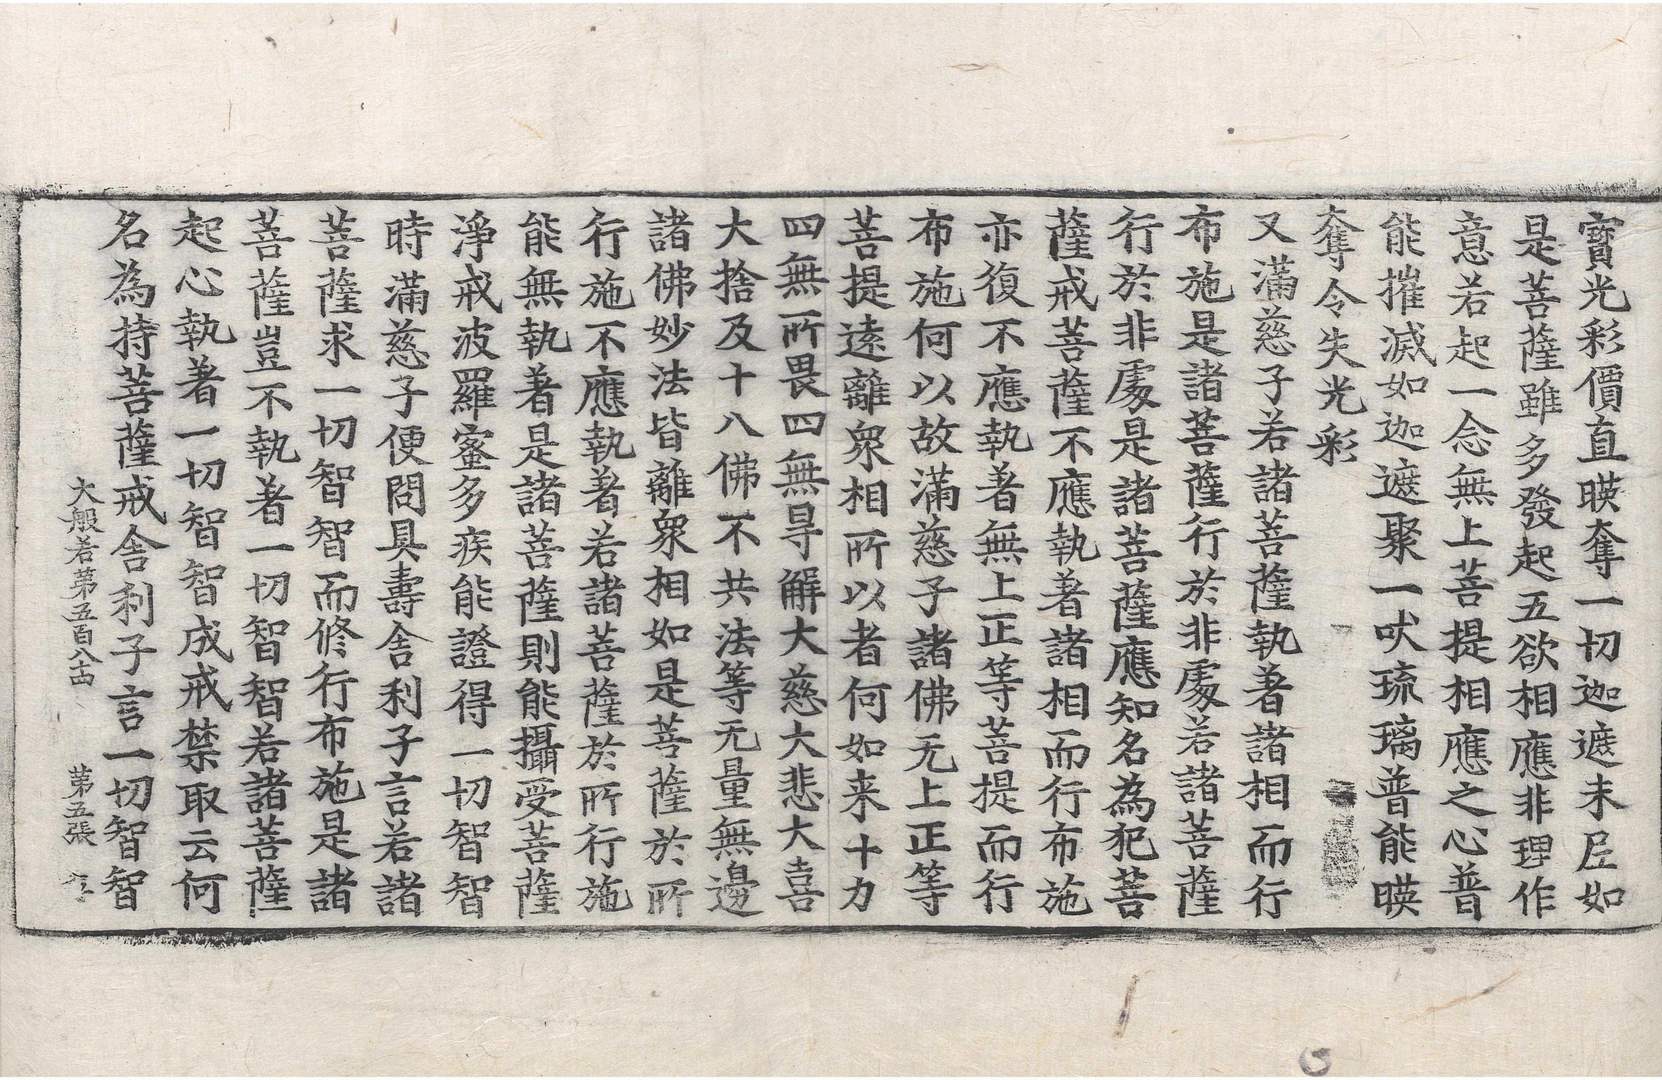 寶光彩價直暎奪一切迦遮末尼如
是菩薩雖多發起五欲相應非理作
意若起一念無上菩提相應之心普
能摧滅如迦遮聚一吠琉璃普能暎
奪令失光彩
又滿慈子若諸菩薩執著諸相而行
布施是諸菩薩行於非處若諸菩薩
行於非處是諸菩薩應知名為犯菩
薩戒菩薩不應執著諸相而行布施
亦復不應執著無上正等菩提而行
布施何以故滿慈子諸佛无上正等
菩提遠離衆相所以者何如来十力
四無所畏四無㝵解大慈大悲大喜
大捨及十八佛不共法等无量無邊
諸佛妙法皆離衆相如是菩薩於所
行施不應執著若諸菩薩於所行施
能無執著是諸菩薩則能攝受菩薩
淨戒波羅蜜多疾能證得一切智智
時滿慈子便問具壽舍利子言若諸
菩薩求一切智智而修行布施是諸
菩薩豈不執著一切智智若諸菩薩
起心執著一切智智成戒禁取云何
名為持菩薩戒舍利子言一切智智
大般若第五百八十四 第五張